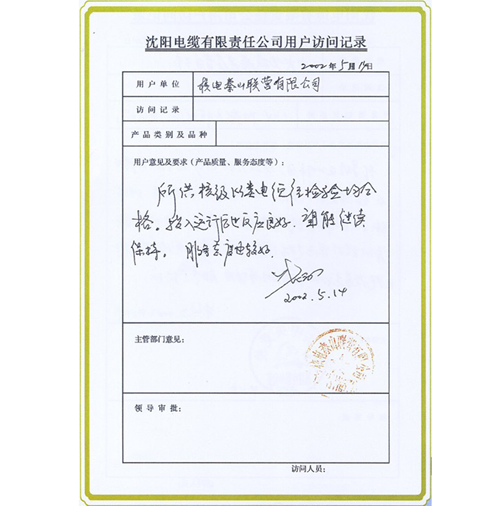 沈阳电缆有限责任公司用户访问记录
2002年5月14日
用户单位 核电秦山联营有限公司
访问记录
产品类别及品种
用户意见及要求（产品质量、服务态度等）：
所供核级K1类电缆经检验均合
格。投入运行后反应良好。望能继续
保持。服务态度也较好。
2002.5.14
主管部门意见：
领导审批：
访问人员：